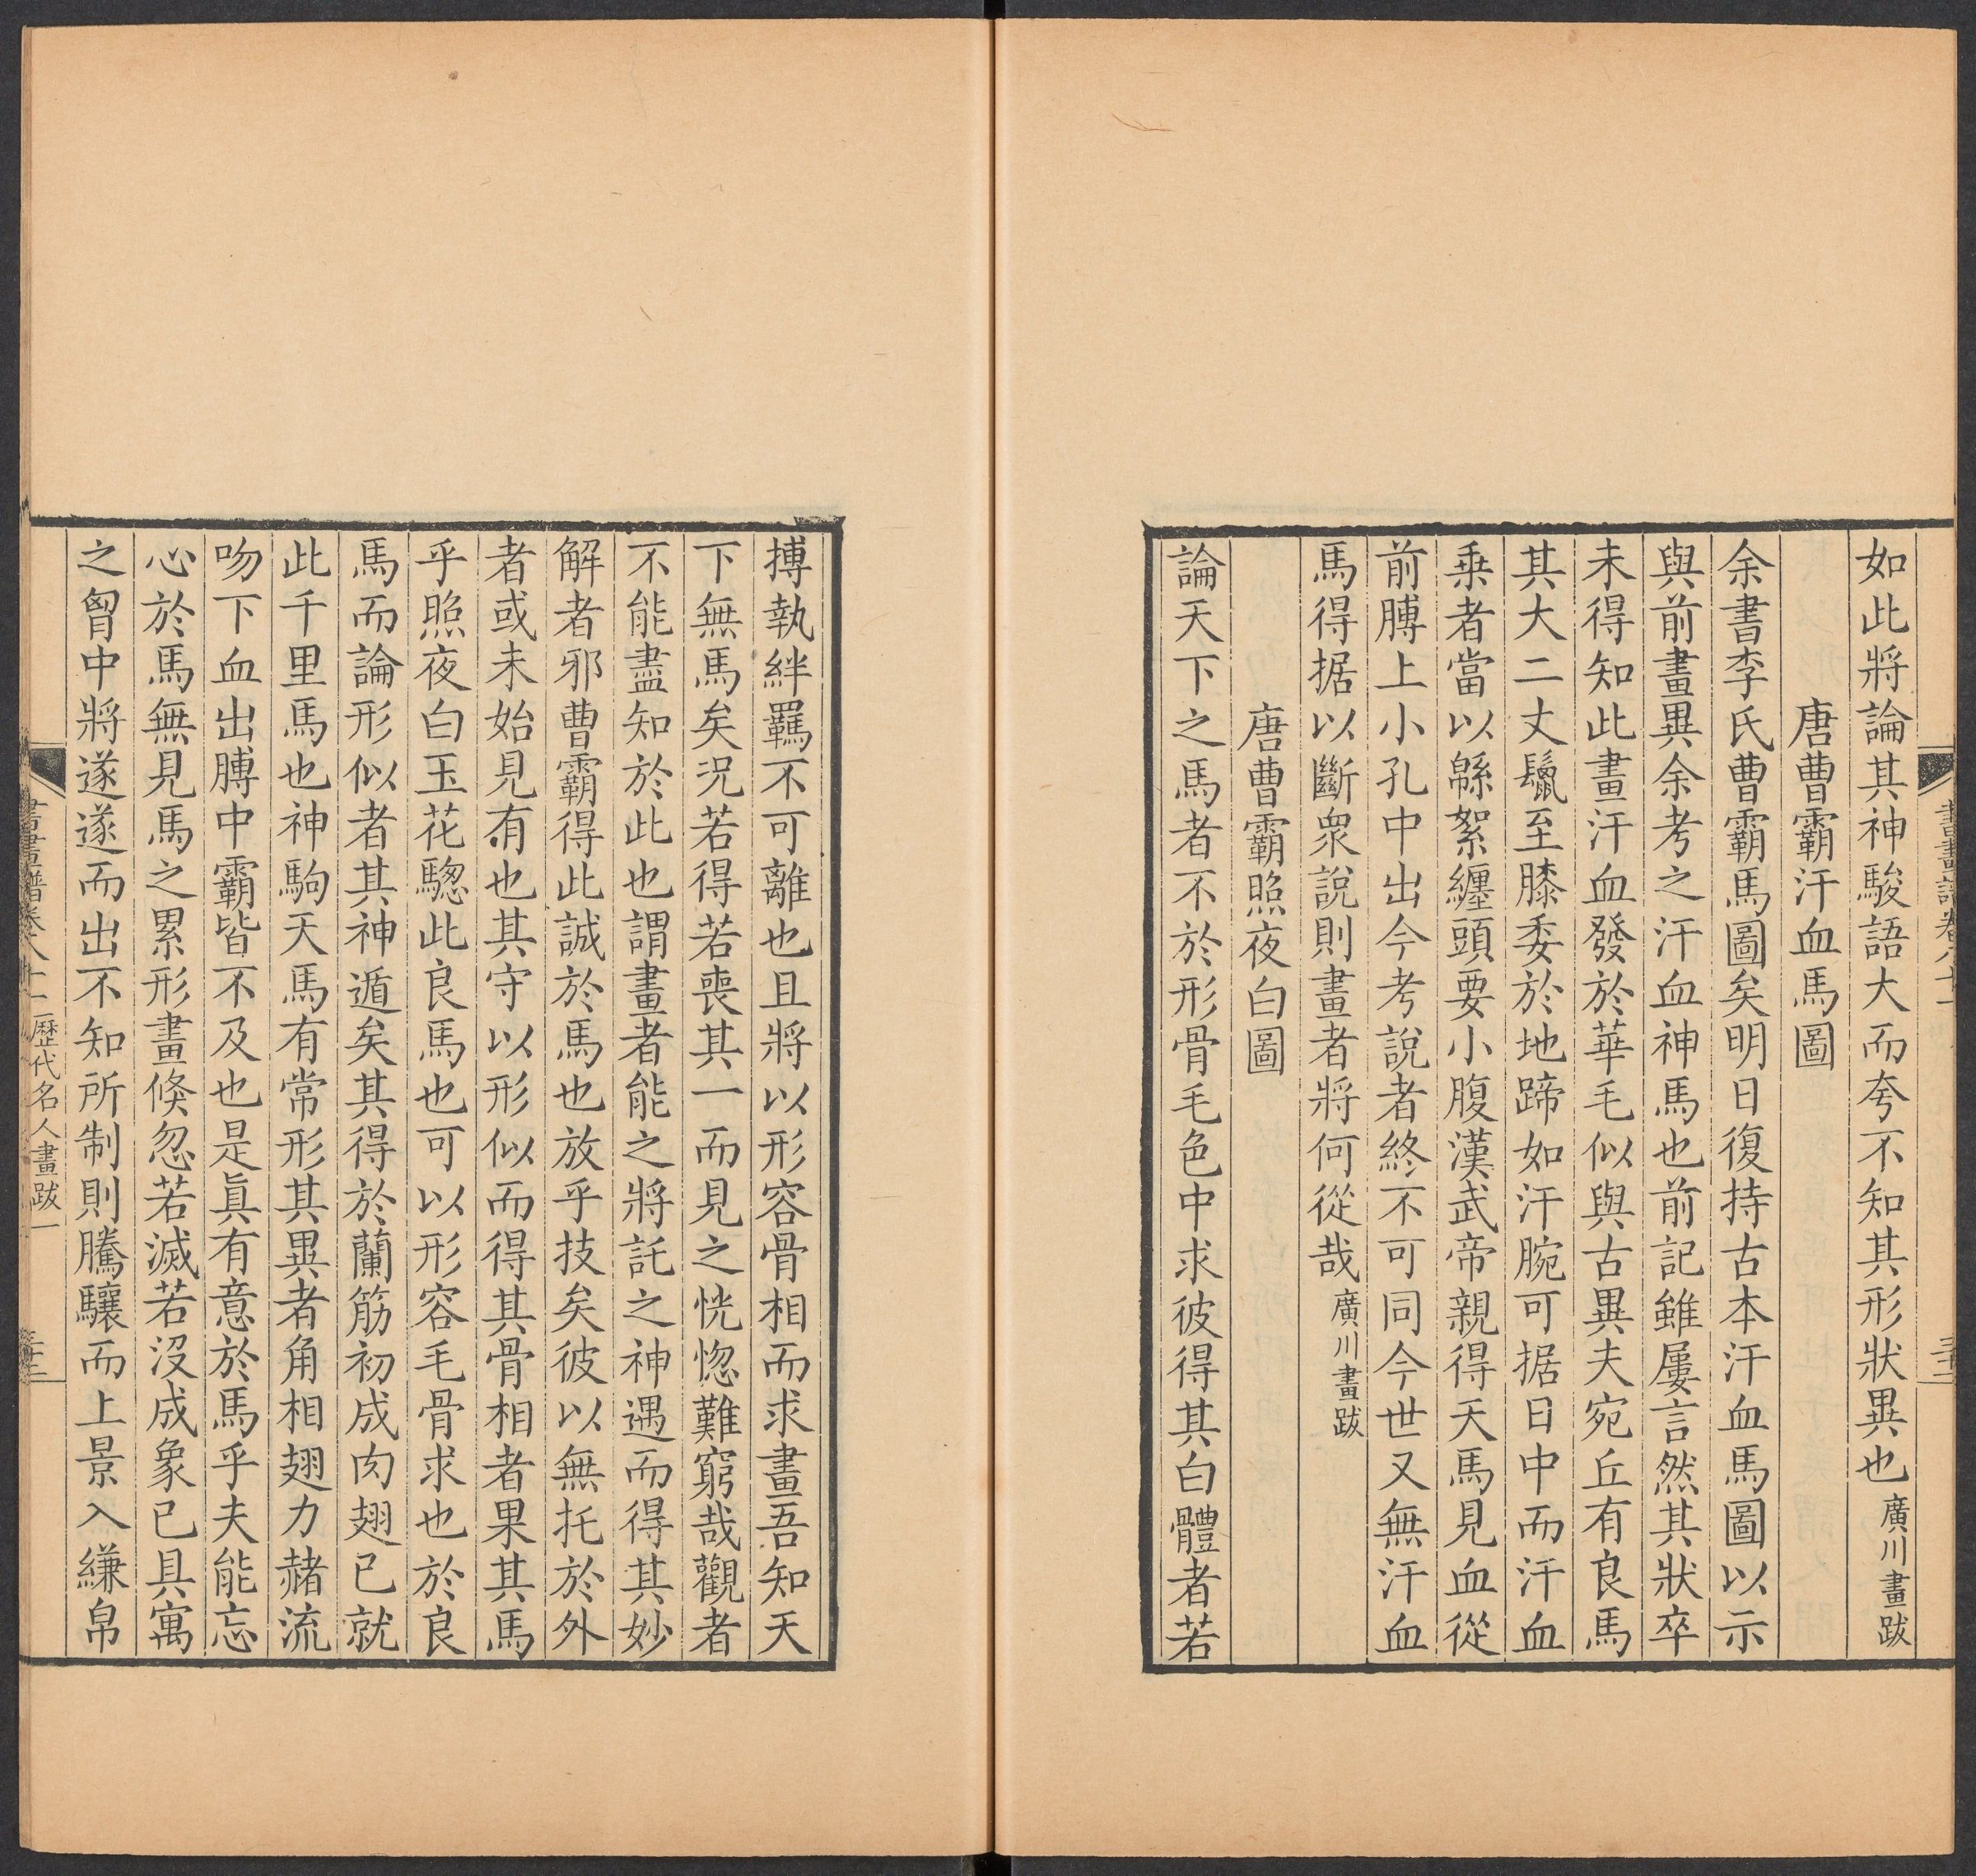 如此將論其神駿語大而夸不知其形狀異也廣川畫跋
唐曹霸汗血馬圖
余書李氏曹霸馬圖矣明日復持古本汗血馬圖以示
與前畫異余考之汗血神馬也前記雖屢言然其狀卒
未得知此畫汗血發於華毛似與古異夫宛丘有良馬
其大二丈鬛至膝委於地蹄如汗腕可据日中而汗血
乗者當以緜絮纒頭要小腹漢武帝親得天馬見血從
前膊上小孔中出今考說者終不可同今世又無汗血
馬得据以斷衆說則畫者將何從哉廣川畫跋
唐曹霸照夜白圖
論天下之馬者不於形骨毛色中求彼得其白體者若
搏執絆羈不可離也且將以形容骨相而求畫吾知天
下無馬矣況若得若喪其一而見之恍惚難窮哉觀者
不能盡知於此也謂畫者能之將託之神遇而得其妙
解者邪曹霸得此誠於馬也放乎技矣彼以無托於外
者或未始見有也其守以形似而得其骨相者果其馬
乎照夜白玉花驄此良馬也可以形容毛骨求也於良
馬而論形似者其神遁矣其得於蘭筋初成肉翅已就
此千里馬也神駒天馬有常形其異者角相翅力赭流
吻下血出膊中霸皆不及也是眞有意於馬乎夫能忘
心於馬無見馬之累形畫倏忽若滅若沒成象已具寓
之胷中將遂遂而出不知所制則騰驤而上景入縑帛
書畫譜卷八十一歷代名人畫跋一